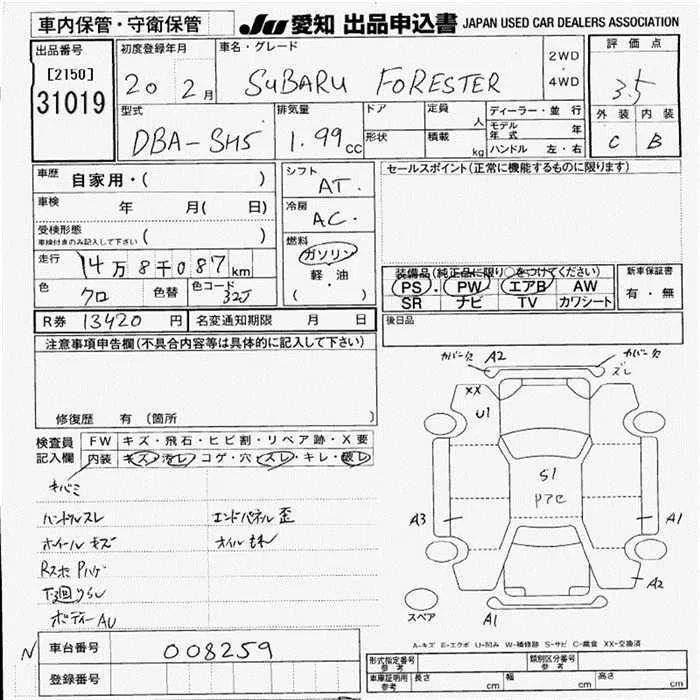 車内保管・守衛保管 JU 愛知 出品申込書 JAPAN USED CAR DEALERS ASSOCIATION
出品番号
[2150]
31019
初度登録年月
20 2月
車名・グレード
SUBARU FORESTER
2WD
・
4WD
評価点
3.5
外装 内装
C B
型式
DBA-SH5
排気量
1.99cc
ドア
形状
定員 人
積載 kg
ディーラー・並行
モデル年式 年
ハンドル 左・右
車歴 自家用・( )
車検 年 月( 日)
受検形態
車検付きのみ記入して下さい ( )
走行 14万8千087km
色 クロ 色替 色コード 32J
シフト
AT.
冷房
AC.
燃料
ガソリン
軽・油
( )
セールスポイント(正常に機能するものに限ります)
装備品(純正品に限り○をつけてください)
PS・PW エアB AW
SR ナビ TV カワシート
新車保証書
有・無
R券 13420円 名変通知期限 月 日
後日品
注意事項申告欄(不具合内容等は具体的に記入して下さい)
修復歴 有(箇所 )
検査員記入欄
FW キズ・飛石・ヒビ割・リペア跡・X要
内装 キズ・汚レ・コゲ・穴・スレ・キレ・破レ
キバミ
ハンドルスレ エンドパネル歪
ホイールキズ オイルもれ
下廻りサビ
ボディーAU
カバー欠 A2 カバー欠
ズレ
XX
U1
S1
A3 A1
A2
A1
スペア
A-キズ E-エクボ U-凹み W-補修跡 S-サビ C-腐食 XX-交換済
N 車台番号 008259
登録番号
形式指定番号 参考 類別区分番号 参考
車庫証明用 参考 長さ cm 幅 cm 高さ cm